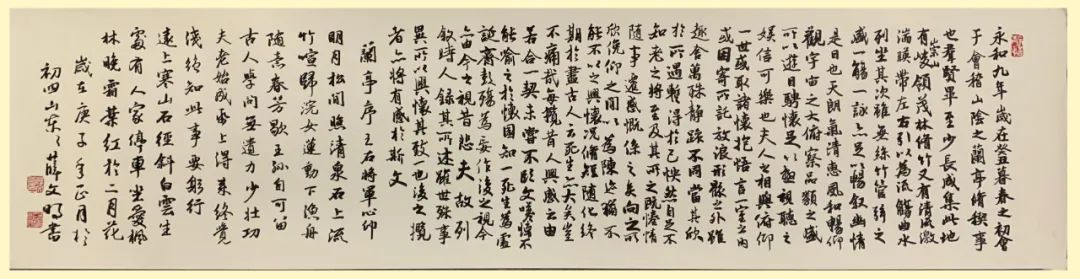 永和九年歲在癸丑暮春之初會
于會稽山陰之蘭亭脩稧事
也羣賢畢至少長咸集此地
有崇山峻領茂林脩竹又有清流激
湍暎帶左右引以為流觴曲水
列坐其次雖無絲竹管絃之
盛一觴一詠亦足以暢叙幽情
是日也天朗氣清惠風和暢仰
觀宇宙之大俯察品類之盛
所以遊目騁懷足以極視聽之
娛信可樂也夫人之相與俯仰
一世或取諸懷抱悟言一室之內
或因寄所託放浪形骸之外雖
趣舍萬殊靜躁不同當其欣
於所遇暫得於己怏然自足不
知老之將至及其所之既惓情
隨事遷感慨係之矣向之所
欣俛仰之間以為陳迹猶不
能不以之興懷況脩短隨化終
期於盡古人云死生亦大矣豈
不痛哉每攬昔人興感之由
若合一契未嘗不臨文嗟悼不
能喻之於懷固知一死生為虛
誕齊彭殤為妄作後之視今
亦由今之視昔悲夫故列
敘時人錄其所述雖世殊事
異所以興懷其致一也後之攬
者亦將有感於斯文
蘭亭序王右將軍心印
明月松間照清泉石上流
竹喧歸浣女蓮動下漁舟
隨意春芳歇王孫自可留
古人學問無遺力少壯功
夫老始成帋上得來終覺
淺絕知此事要躬行
遠上寒山石徑斜白雲生
處有人家停車坐愛楓
林晚霜葉紅於二月花
歲在庚子年正月於
初四山東薛文明書